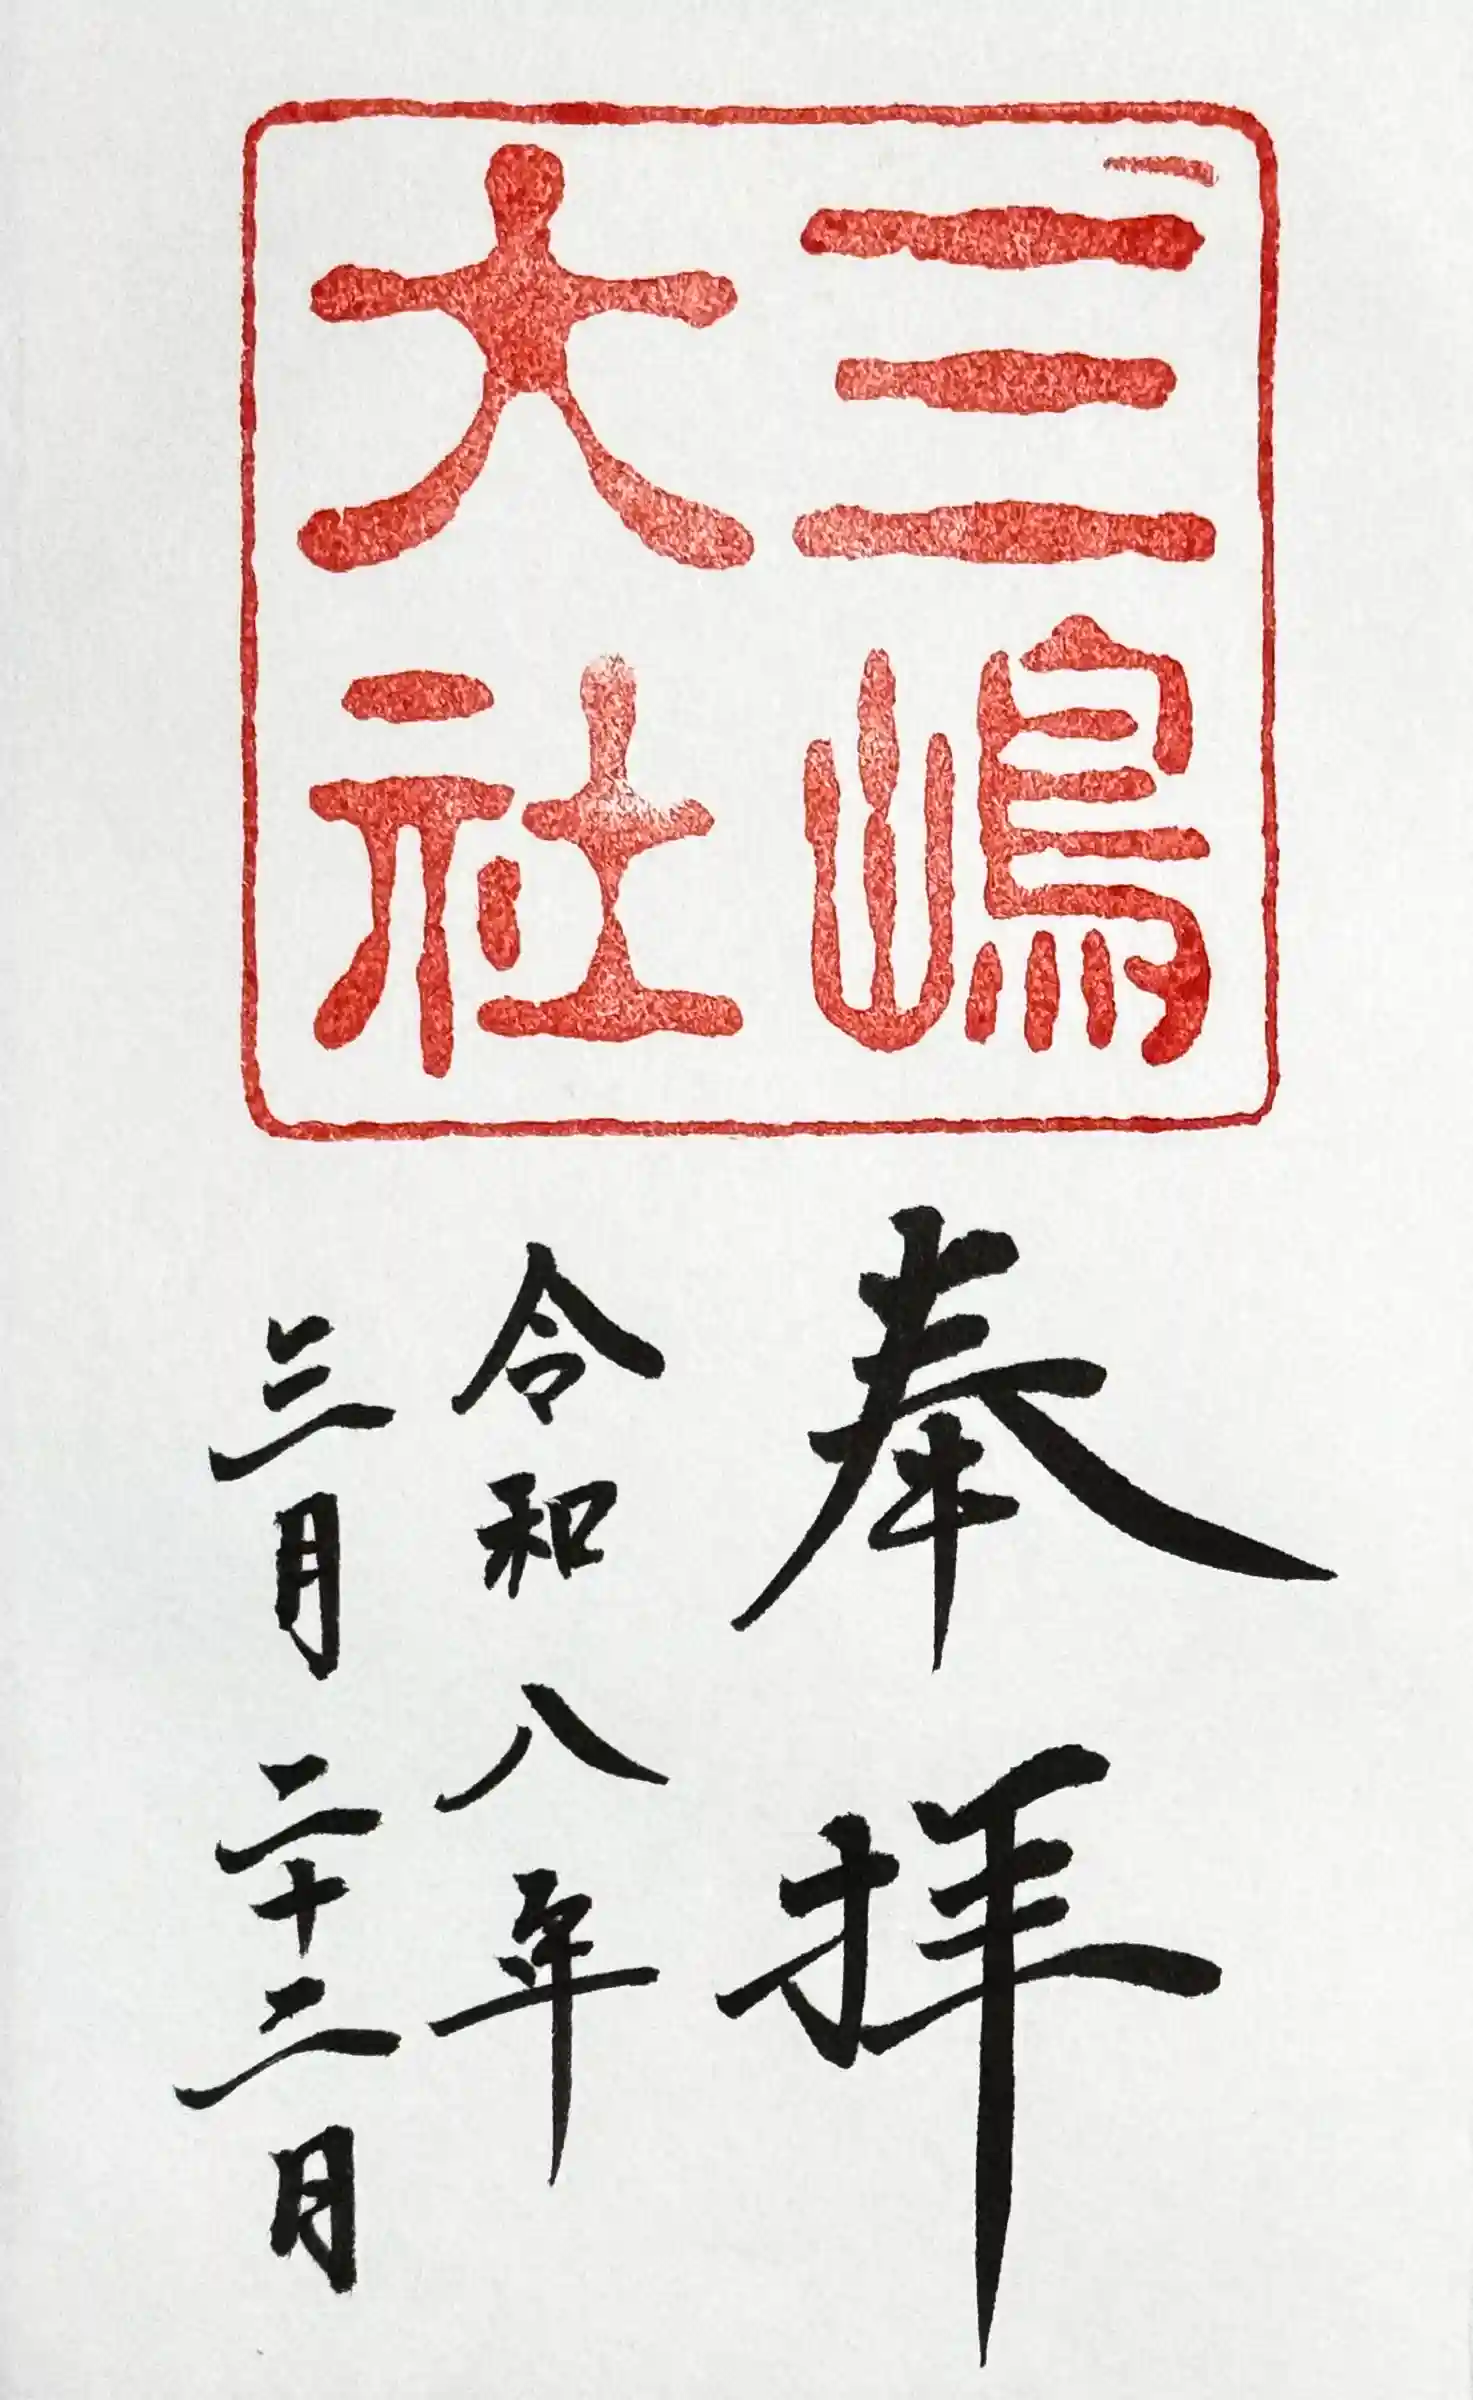 三嶋
大社
奉拝
令和八年
三月二十二日